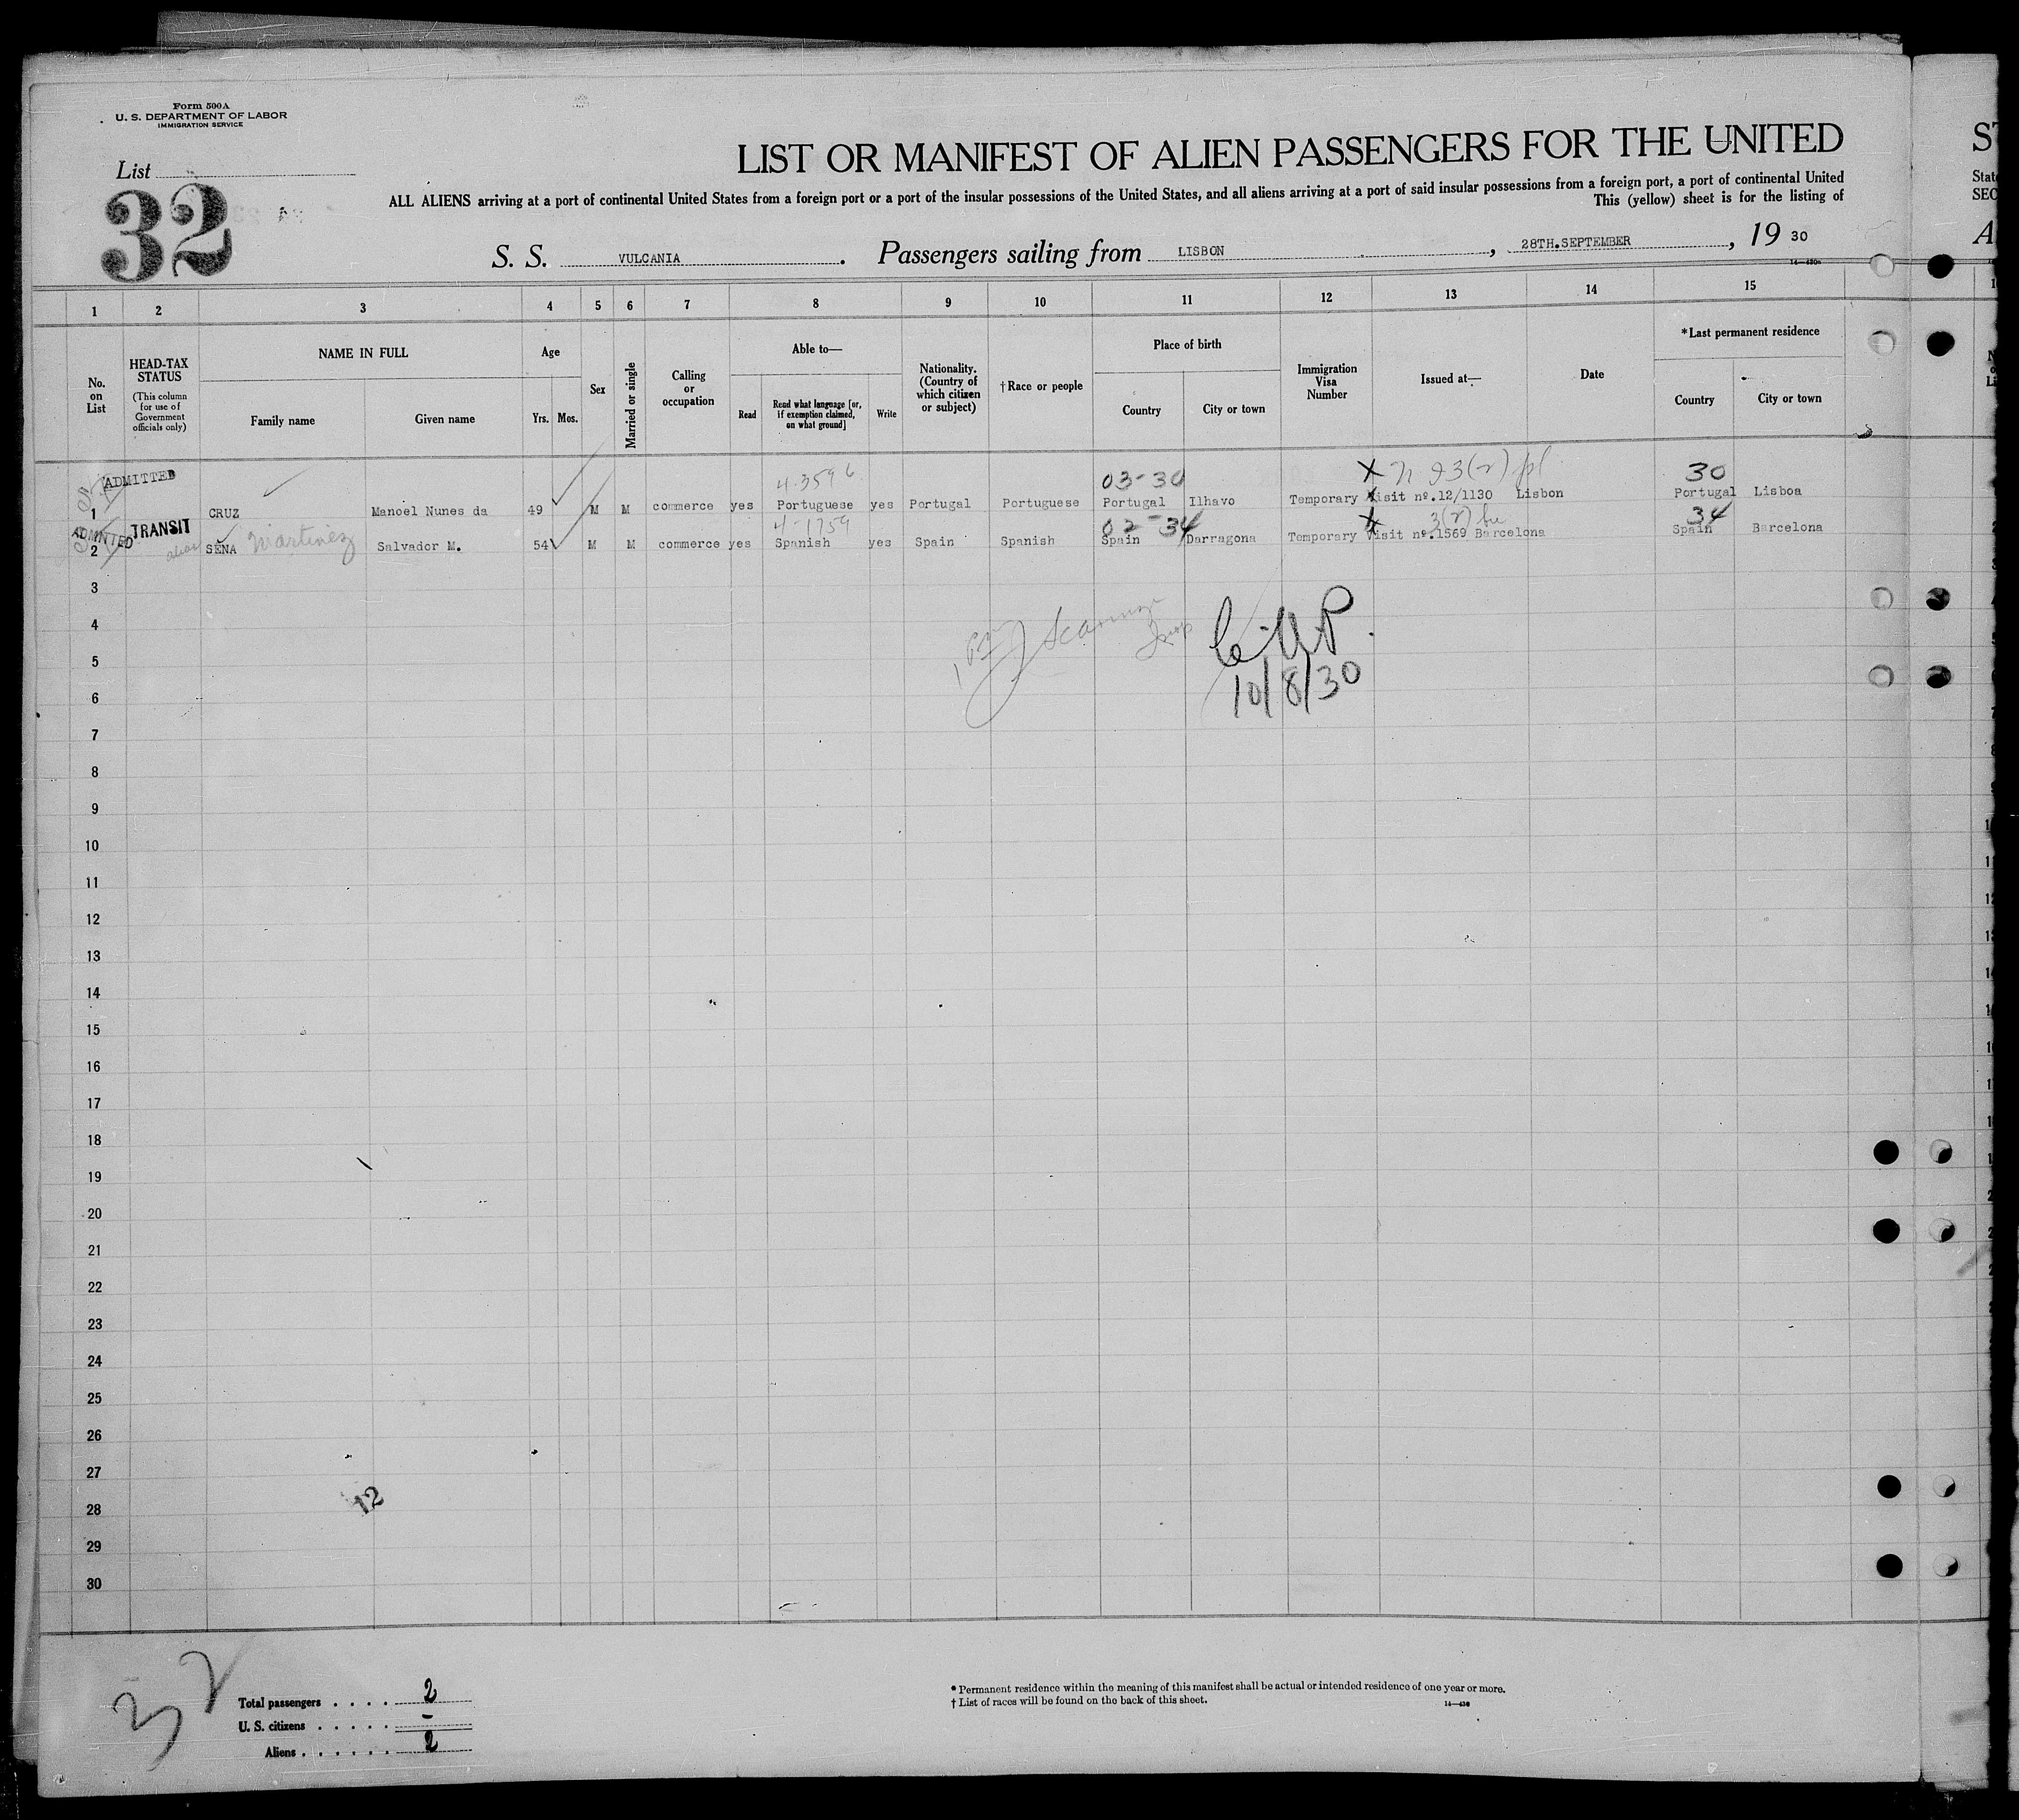 Form 500A
U. S. DEPARTMENT OF LABOR
IMMIGRATION SERVICE
List
32
LIST OR MANIFEST OF ALIEN PASSENGERS FOR THE UNITED
ALL ALIENS arriving at a port of continental United States from a foreign port or a port of the insular possessions of the United States, and all aliens arriving at a port of said insular possessions from a foreign port, a port of continental United
This (yellow) sheet is for the listing of
S. S. VULCANIA. Passengers sailing from LISBON, 28TH.SEPTEMBER, 19 30
1 2 3 4 5 6 7 8 9 10 11 12 13 14 15
No. on List
HEAD-TAX STATUS
(This column for use of Government officials only)
NAME IN FULL
Family name Given name
Age
Yrs. Mos.
Sex
Married or single
Calling or occupation
Able to—
Read Read what language [or, if exemption claimed, on what ground] Write
Nationality. (Country of which citizen or subject)
†Race or people
Place of birth
Country City or town
Immigration Visa Number
Issued at—
Date
*Last permanent residence
Country City or town
ADMITTED 4-3596 03-30 30
1 CRUZ Manoel Nunes da 49 M M commerce yes Portuguese yes Portugal Portuguese Portugal Ilhavo Temporary Visit nº.12/1130 Lisbon Portugal Lisboa
ADMITTED TRANSIT 4-1759 02-34 34
2 SENA Martinez Salvador M. 54 M M commerce yes Spanish yes Spain Spanish Spain Darragona Temporary Visit nº.1569 Barcelona Spain Barcelona
3
4
5
10/8/30
6
7
8
9
10
11
12
13
14
15
16
17
18
19
20
21
22
23
24
25
26
27
12
28
29
30
32
Total passengers . . . . 2
U. S. citizens . . . . . -
Aliens . . . . . . 2
*Permanent residence within the meaning of this manifest shall be actual or intended residence of one year or more.
†List of races will be found on the back of this sheet.